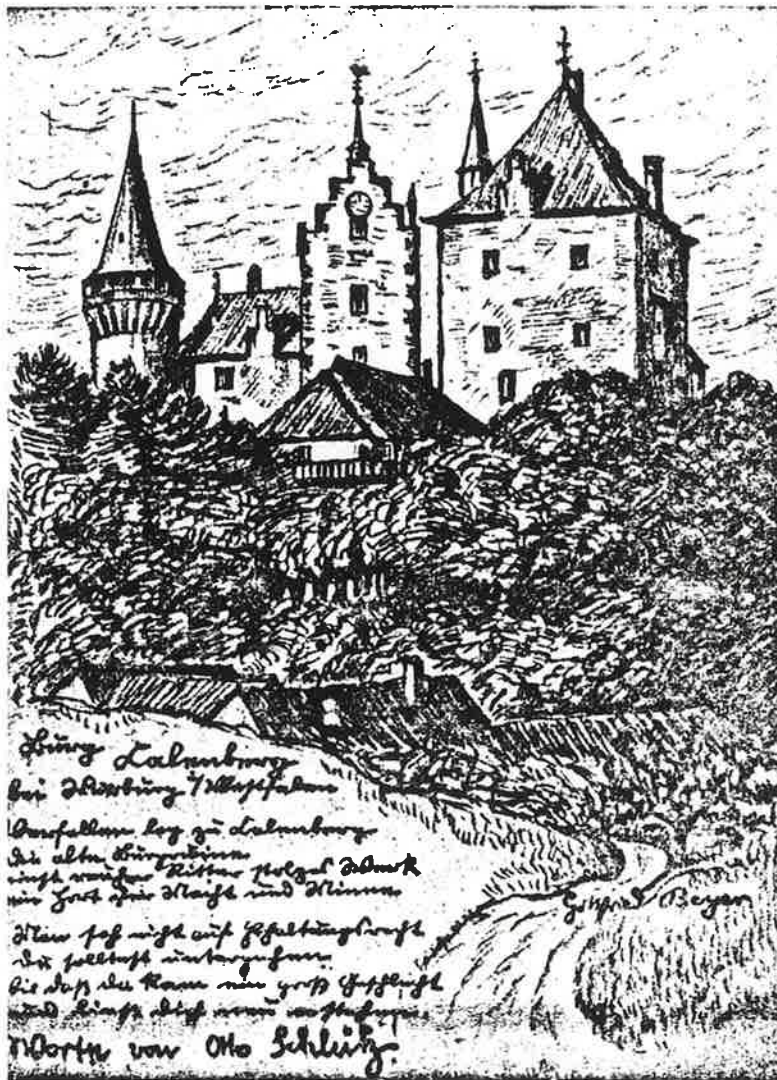 Burg Calenberg
bei Warburg i/Westfalen
Verfallen lag zu Calenberg
die alte Burgruine
einst reicher Ritter stolzes Werk
ein Hort für Macht und Minne
Man sah nicht auf Erhaltungsrecht
du solltest untergehen
bis daß da kam ein groß Geschlecht
und ließ dich neu erstehen.
Worte von Otto Schleitz.
Gottfried Beyer